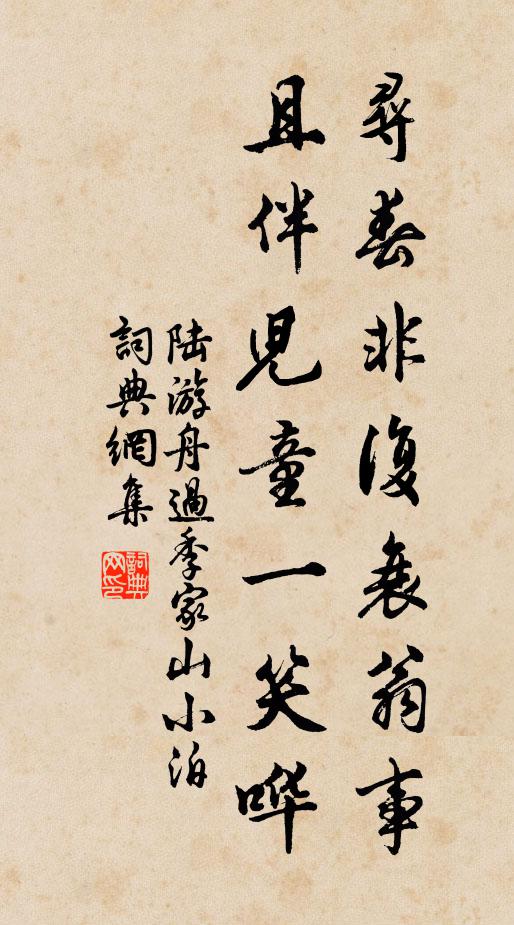 尋春非復衰翁事
且伴兒童一笑哗
陆游舟過季家山小泊
詞典網集
詞典网印